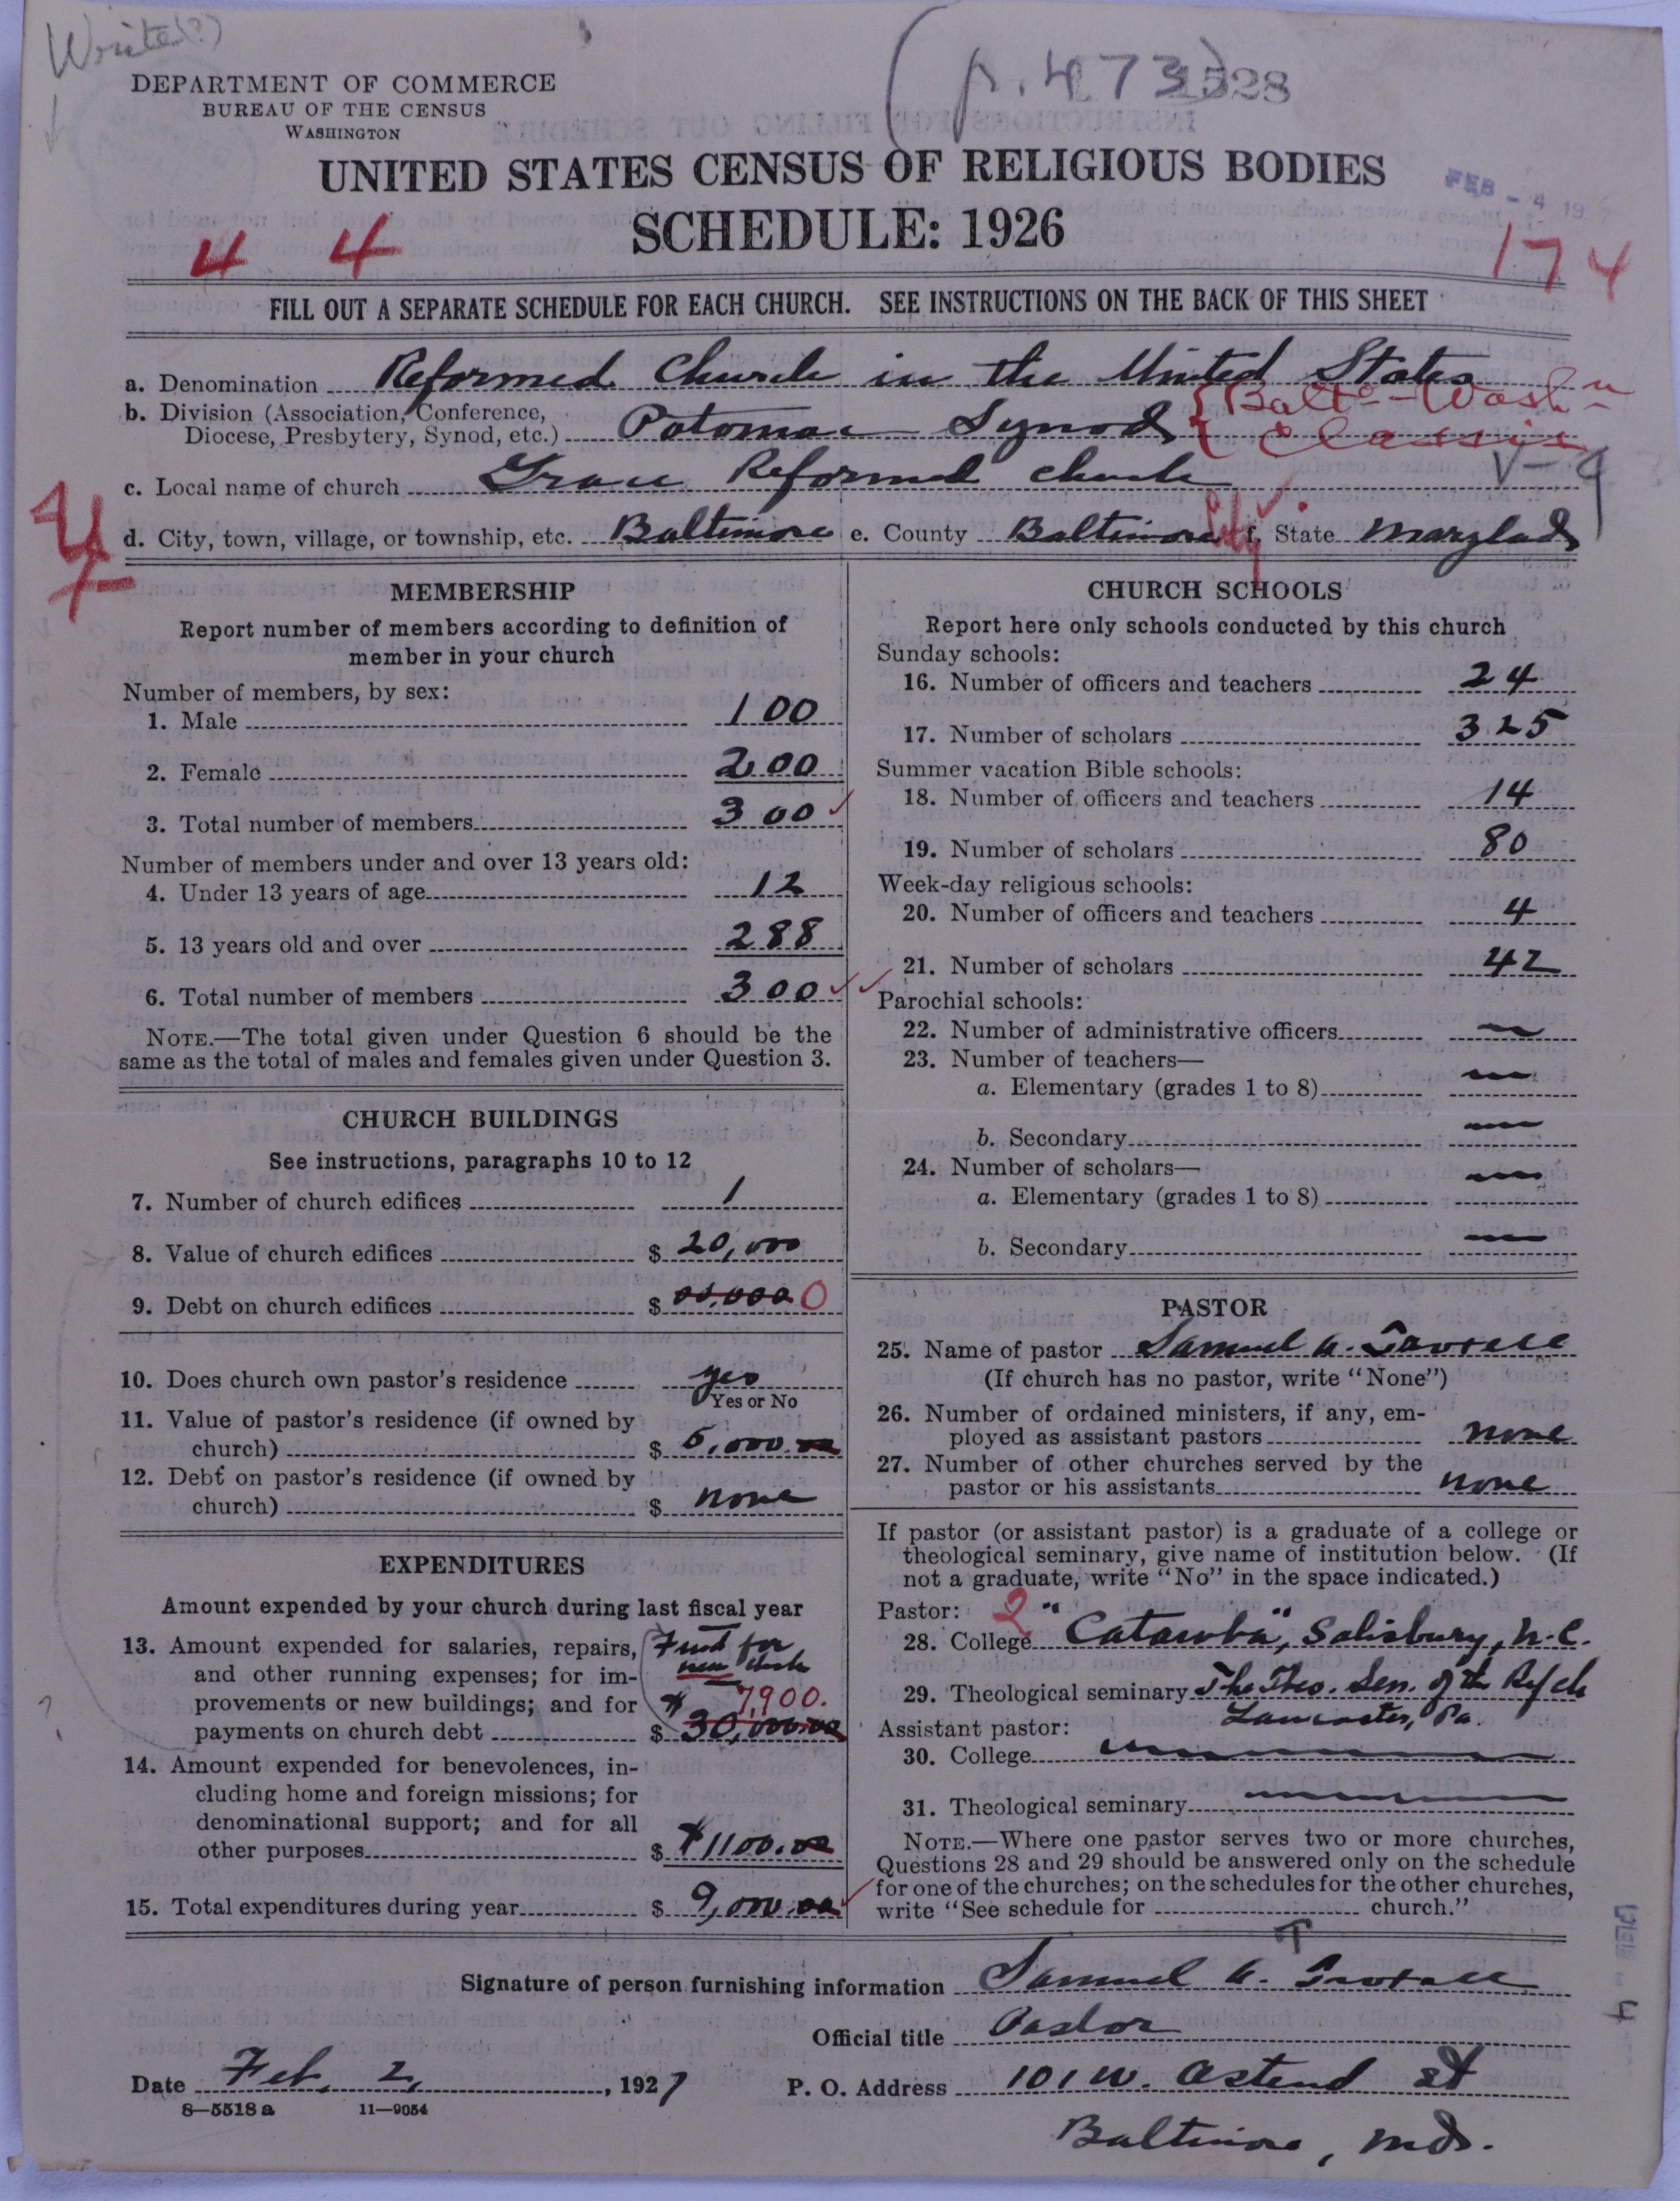 Write(?)
DEPARTMENT OF COMMERCE
BUREAU OF THE CENSUS
WASHINGTON
(p. 473) 528
UNITED STATES CENSUS OF RELIGIOUS BODIES
SCHEDULE: 1926
FEB - 4 19
4 4
174
FILL OUT A SEPARATE SCHEDULE FOR EACH CHURCH. SEE INSTRUCTIONS ON THE BACK OF THIS SHEET
a. Denomination Reformed Church in the United States
b. Division (Association, Conference, Diocese, Presbytery, Synod, etc.) Potomac Synod { Balto-Washn Classis
c. Local name of church Grace Reformed church
d. City, town, village, or township, etc. Baltimore e. County Baltimore City f. State Maryland
MEMBERSHIP
Report number of members according to definition of
member in your church
Number of members, by sex:
1. Male 100
2. Female 200
3. Total number of members 300
Number of members under and over 13 years old:
4. Under 13 years of age 12
5. 13 years old and over 288
6. Total number of members 300
NOTE.—The total given under Question 6 should be the
same as the total of males and females given under Question 3.
CHURCH BUILDINGS
See instructions, paragraphs 10 to 12
7. Number of church edifices 1
8. Value of church edifices $ 20,000
9. Debt on church edifices $ 00,000 0
10. Does church own pastor's residence yes
Yes or No
11. Value of pastor's residence (if owned by
church) $ 5,000.00
12. Debt on pastor's residence (if owned by
church) $ none
EXPENDITURES
Amount expended by your church during last fiscal year
13. Amount expended for salaries, repairs, Fund for
and other running expenses; for im- new church
provements or new buildings; and for $ 7,900.
payments on church debt $ 30,000.00
14. Amount expended for benevolences, in-
cluding home and foreign missions; for
denominational support; and for all
other purposes $ $1100.00
15. Total expenditures during year $ 9,000.00
CHURCH SCHOOLS
Report here only schools conducted by this church
Sunday schools:
16. Number of officers and teachers 24
17. Number of scholars 325
Summer vacation Bible schools:
18. Number of officers and teachers 14
19. Number of scholars 80
Week-day religious schools:
20. Number of officers and teachers 4
21. Number of scholars 42
Parochial schools:
22. Number of administrative officers —
23. Number of teachers—
a. Elementary (grades 1 to 8) —
b. Secondary —
24. Number of scholars—
a. Elementary (grades 1 to 8) —
b. Secondary —
PASTOR
25. Name of pastor Samuel A.
(If church has no pastor, write "None")
26. Number of ordained ministers, if any, em-
ployed as assistant pastors none
27. Number of other churches served by the
pastor or his assistants none
If pastor (or assistant pastor) is a graduate of a college or
theological seminary, give name of institution below. (If
not a graduate, write "No" in the space indicated.)
Pastor: 2
28. College "Catawba", Salisbury, N.C.
29. Theological seminary The Theo. Sem. of the Ref ch
Lancaster, Pa.
Assistant pastor:
30. College
31. Theological seminary
NOTE.—Where one pastor serves two or more churches,
Questions 28 and 29 should be answered only on the schedule
for one of the churches; on the schedules for the other churches,
write "See schedule for church."
T
Signature of person furnishing information Samuel A.
Official title Pastor
Date Feb. 2, 1927
P. O. Address 101 W. Ostend St
Baltimore, Md.
8—5518 a 11—9054
FEB - 4